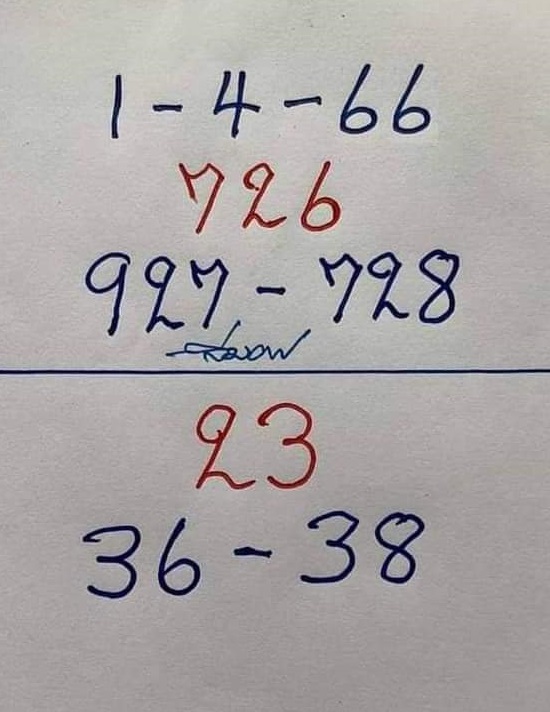 1-4-66
726
927-728
23
36-38